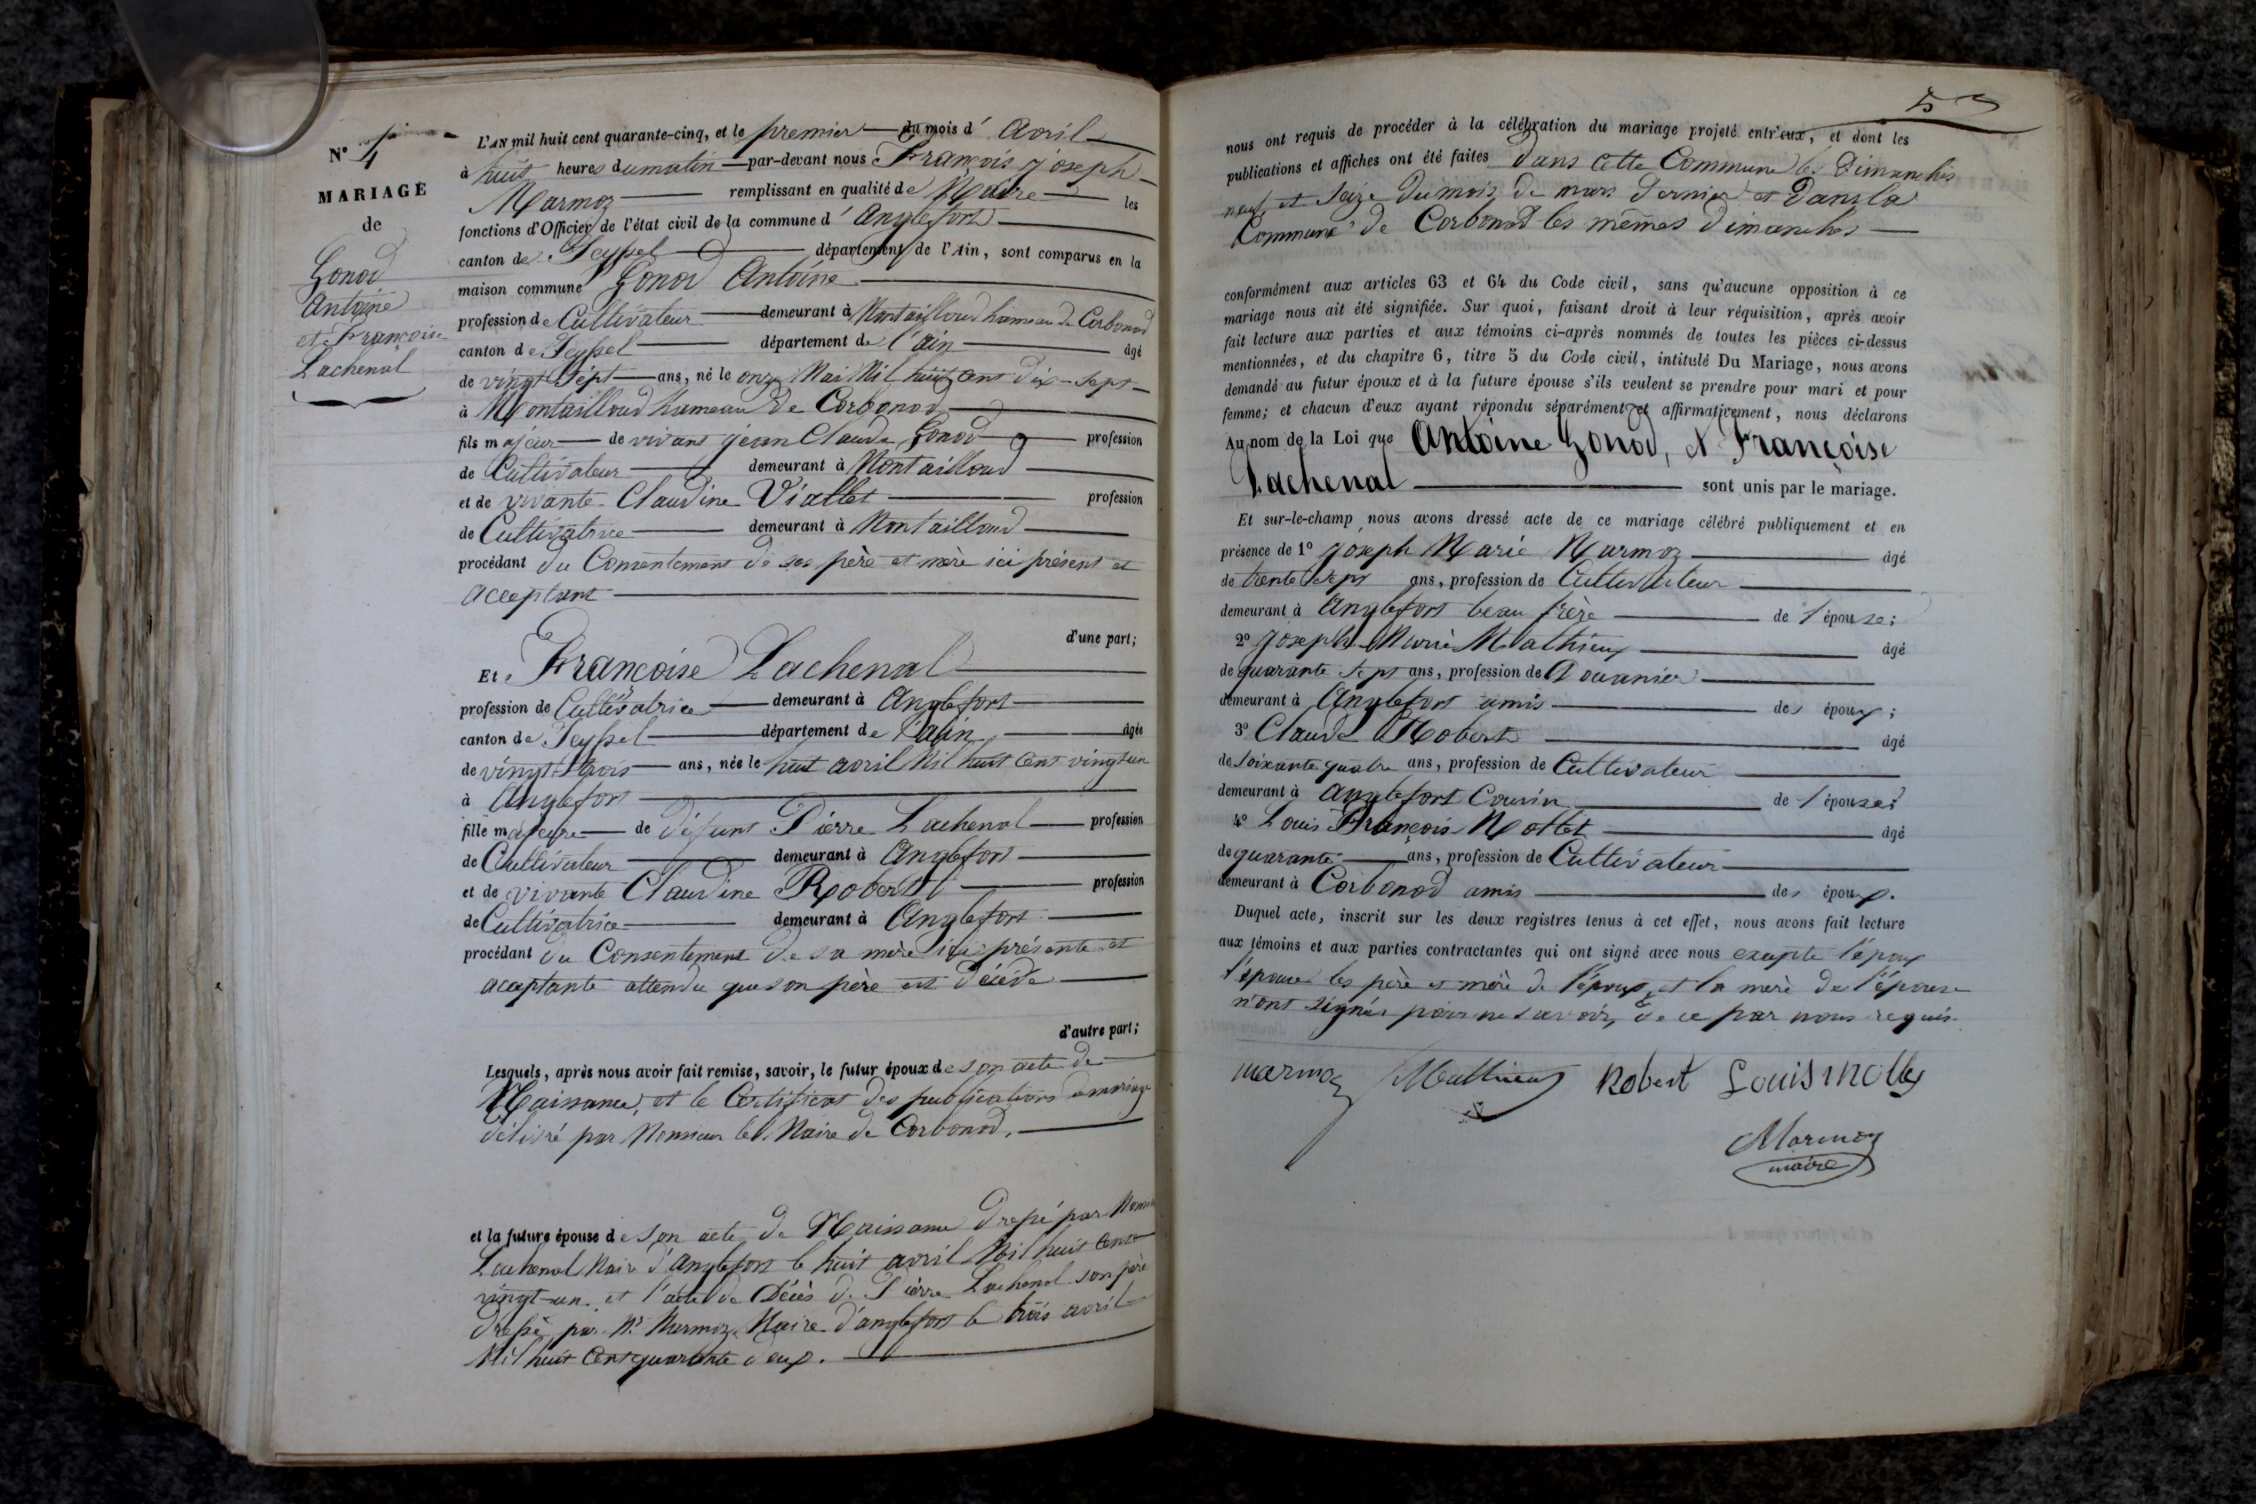 N° 4
MARIAGE
de
Gonod
Antoine
et Françoise
Lachenal
L'AN mil huit cent quarante-cinq, et le premier du mois d' avril
à huit heures du matin par-devant nous François Joseph
Marmoz remplissant en qualité de Maire les
fonctions d'Officier de l'état civil de la commune d' anglefort
canton de Seyssel département de l'Ain, sont comparus en la
maison commune Gonod Antoine
profession de Cultivateur demeurant à Montailloud hameau de Corbonod
canton de Seyssel département de l'ain âgé
de vingt sept ans, né le onze Mai Mil huit cent dix-sept
à Montailloud hameau de Corbonod
fils majeur de vivant jean Claude Gonod profession
de Cultivateur demeurant à Montailloud
et de vivante Claudine Viallet profession
de Cultivatrice demeurant à Montailloud
procédant du Consentement de ses père et mère ici présent et
acceptant
d'une part;
Et Françoise Lachenal
profession de Cultivatrice demeurant à anglefort
canton de Seyssel département de l'ain âgée
de vingt-trois ans, née le huit avril Mil huit cent vingt un
à anglefort
fille majeure de défunt Pierre Lachenal profession
de Cultivateur demeurant à anglefort
et de vivante Claudine Robert profession
de Cultivatrice demeurant à anglefort
procédant du Consentement de sa mère ici présente et
acceptante attendu que son père est décédé
d'autre part;
Lesquels, après nous avoir fait remise, savoir, le futur époux de son acte de
Naissance, et le Certificat des publications de mariage
délivré par Monsieur le Maire de Corbonod.
et la future épouse de son acte de Naissance dressé par
Lachenal Maire d'anglefort le huit avril Mil huit cent
vingt-un. et l'acte de Décès de Pierre Lachenal son père
dressé par Mr Marmoz Maire d'anglefort le trois avril
Mil huit Cent quarante deux.
53
nous ont requis de procéder à la célébration du mariage projeté entr'eux, et dont les
publications et affiches ont été faites dans cette Commune les Dimanches
neuf et Seize du mois de mars dernier et dans la
Commune de Corbonod les mêmes Dimanches
conformément aux articles 63 et 64 du Code civil, sans qu'aucune opposition à ce
mariage nous ait été signifiée. Sur quoi, faisant droit à leur réquisition, après avoir
fait lecture aux parties et aux témoins ci-après nommés de toutes les pièces ci-dessus
mentionnées, et du chapitre 6, titre 5 du Code civil, intitulé Du Mariage, nous avons
demandé au futur époux et à la future épouse s'ils veulent se prendre pour mari et pour
femme; et chacun d'eux ayant répondu séparément et affirmativement, nous déclarons
Au nom de la Loi que Antoine Gonod, et Françoise
Lachenal sont unis par le mariage.
Et sur-le-champ nous avons dressé acte de ce mariage célébré publiquement et en
présence de 1° Joseph Marie Marmoz âgé
de trente sept ans, profession de Cultivateur
demeurant à Anglefort beau frère de l'épouse;
2° Joseph Marie Mathieu âgé
de quarante sept ans, profession de Douanier
demeurant à Anglefort amis des époux;
3° Claude Robert âgé
de soixante quatre ans, profession de Cultivateur
demeurant à anglefort Cousin de l'épouse;
4° Louis François Mollet âgé
de quarante ans, profession de Cultivateur
demeurant à Corbonod amis des époux.
Duquel acte, inscrit sur les deux registres tenus à cet effet, nous avons fait lecture
aux témoins et aux parties contractantes qui ont signé avec nous excepte l'époux
l'épouse les père et mère de l'époux, et la mère de l'épouse
n'ont signés pour ne savoir, de ce par nous requis
marmoz Mathieu Robert Louis Mollet
Marmoz
maire